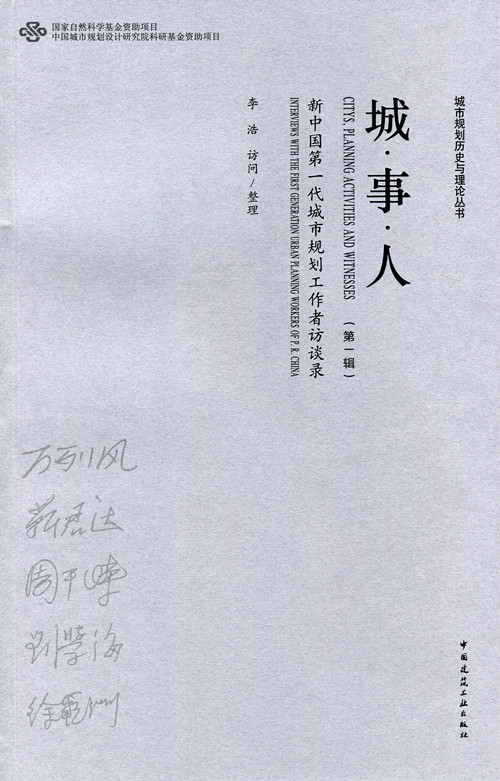 国家自然科学基金资助项目
中国城市规划设计研究院科研基金资助项目
城市规划历史与理论丛书
城·事·人
CITYS, PLANNING ACTIVITIES AND WITNESSES
（第一辑）
新中国第一代城市规划工作者访谈录
INTERVIEWS WITH THE FIRST GENERATION URBAN PLANNING WORKERS OF P. R. CHINA
李浩 访问/整理
万列风
靳君达
周干峙
刘学海
中国建筑工业出版社